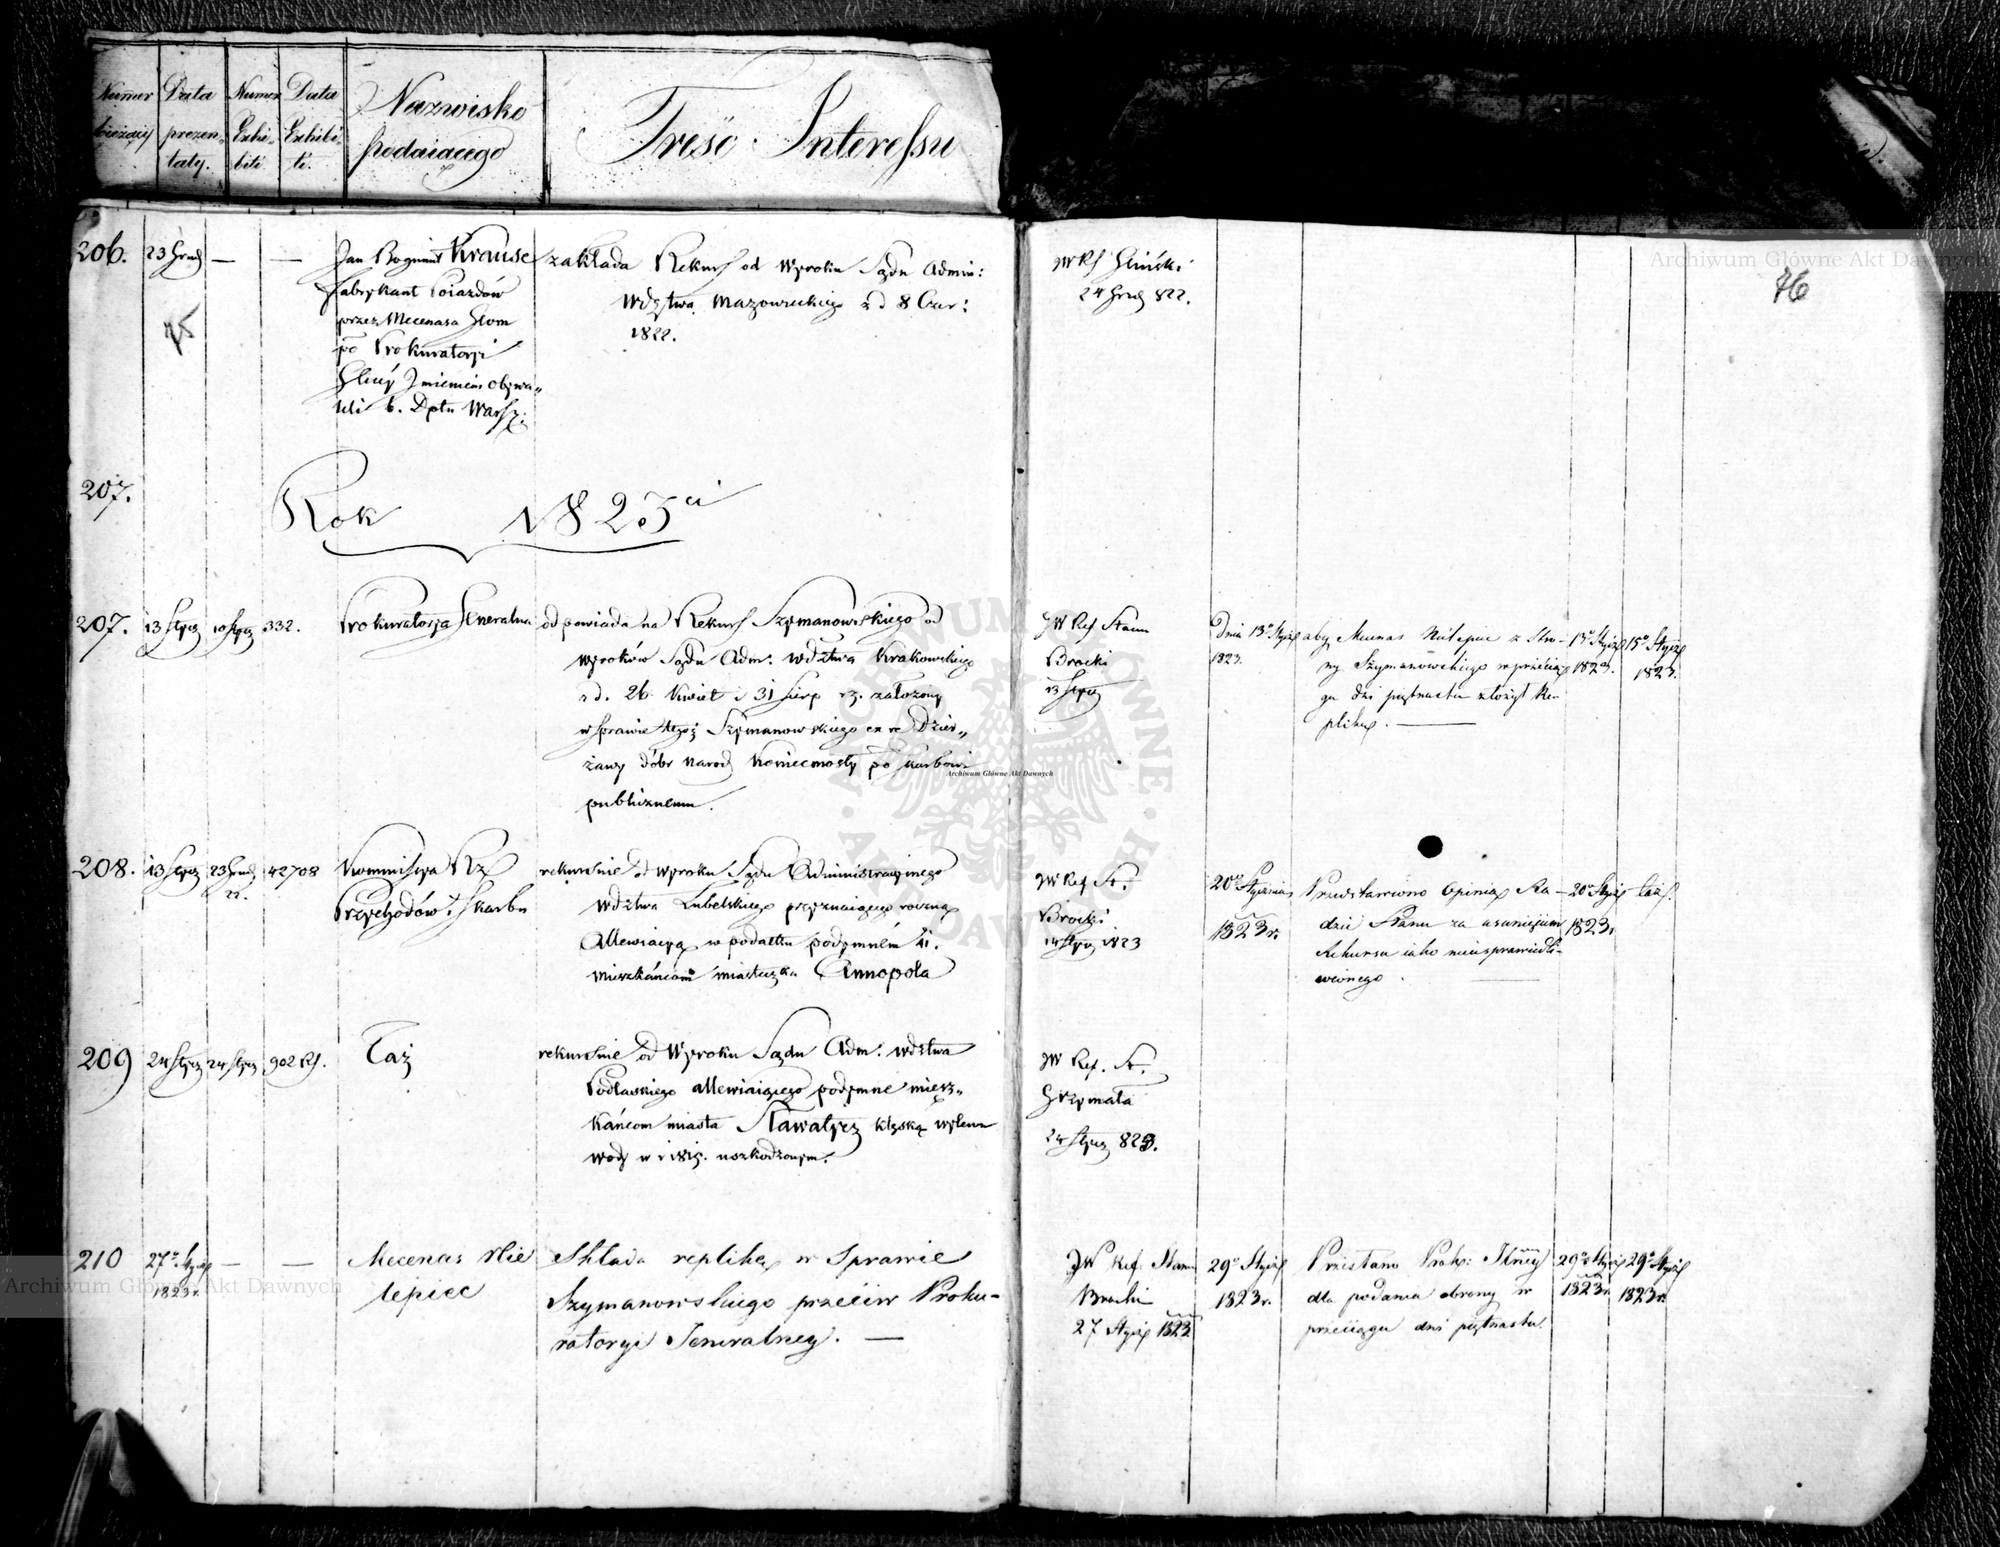 Numer bieżący
Data prezentaty.
Numer Exhibiti
Data Exhibiti.
Nazwisko
podaiącego
Treść Interessu
76
206. 23 Grud — —
Jan Bogumił Krause
fabrykant Poiazdów
przez Mecenasa
po Prokuratorii
Imieniem obywa„
teli b. Dptu Warsz.
zakłada Rekurs od Wyroku Sądu Admin:
Wdztwa Mazowieckiego z d 8 Czer:
1822.
JW Rf Gliński
24 Grud 822.
207.
Rok 1823ci
207. 13 Stycz 10 Stycz 332.
Prokuratorja Generalna
odpowiada na Rekurs Szymanowskiego od
Wyroków Sądu Adm. Wdztwa Krakowskiego
z d. 26 Kwiet i 31 Sierp założony
w sprawie tegoż Szymanowskiego ex re Dzier„
żawy dóbr Narod. Koniecmosty po skarbowi
publicznemu.
JW Ref Stanu
Brocki
13 Stycz
Dnia 13o Stycz
1823.
aby Mecenas Nielepiec z Stro–
ny Szymanowskiego w przecią
gu dni piętnastu złożył Re–
plikę. —
13o Stycz
1823.
15o Stycz
1823.
208. 13 Stycz 23 Grud 22. 42708
Kommissya Rz
Przychodów i Skarbu
rekursuie od wyroku Sądu Administracyinego
Wdztwa Lubelskiego przyznaiącego roczną
Allewiacyą w podatku podymném
mieszkańcom miasteczka Annopola
JW Ref St.
Brocki
14 Stycz 1823
20o Stycznia
1823 r.
Przedstawiono Opinią Ra–
dzie Stanu za usunięciem
Rekursu iako nieusprawiedli–
wionego.
20o Stycz
1823.
taż.
209 24 Stycz 24 Stycz 902 Rf.
Taż
rekursuie od Wyroku Sądu Adm. Wdztwa
Podlaskiego allewiaiącego podymne miesz„
kańcom miasta Sławatycz klęską wylewu
wody w r 1815. uszkodzonym.
JW Ref. St.
Grzymała
24 Stycz 823.
210 27o Stycz
1823 r. — —
Mecenas Nie
lepiec
Składa replikę w Sprawie
Szymanowskiego przeciw Proku–
ratoryi Jeneralney. —
JW Ref. Stanu
Brocki
27 Stycz 1823
29o Stycz
1823 r.
Przesłano Prok:
dla podania obrony w
przeciągu dni piętnastu.
29o Stycz
1823
29o Stycz
1823 r.
Archiwum Główne Akt Dawnych
Archiwum Główne Akt Dawnych
Archiwum Główne Akt Dawnych
ARCHIWUM GŁÓWNE AKT DAWNYCH